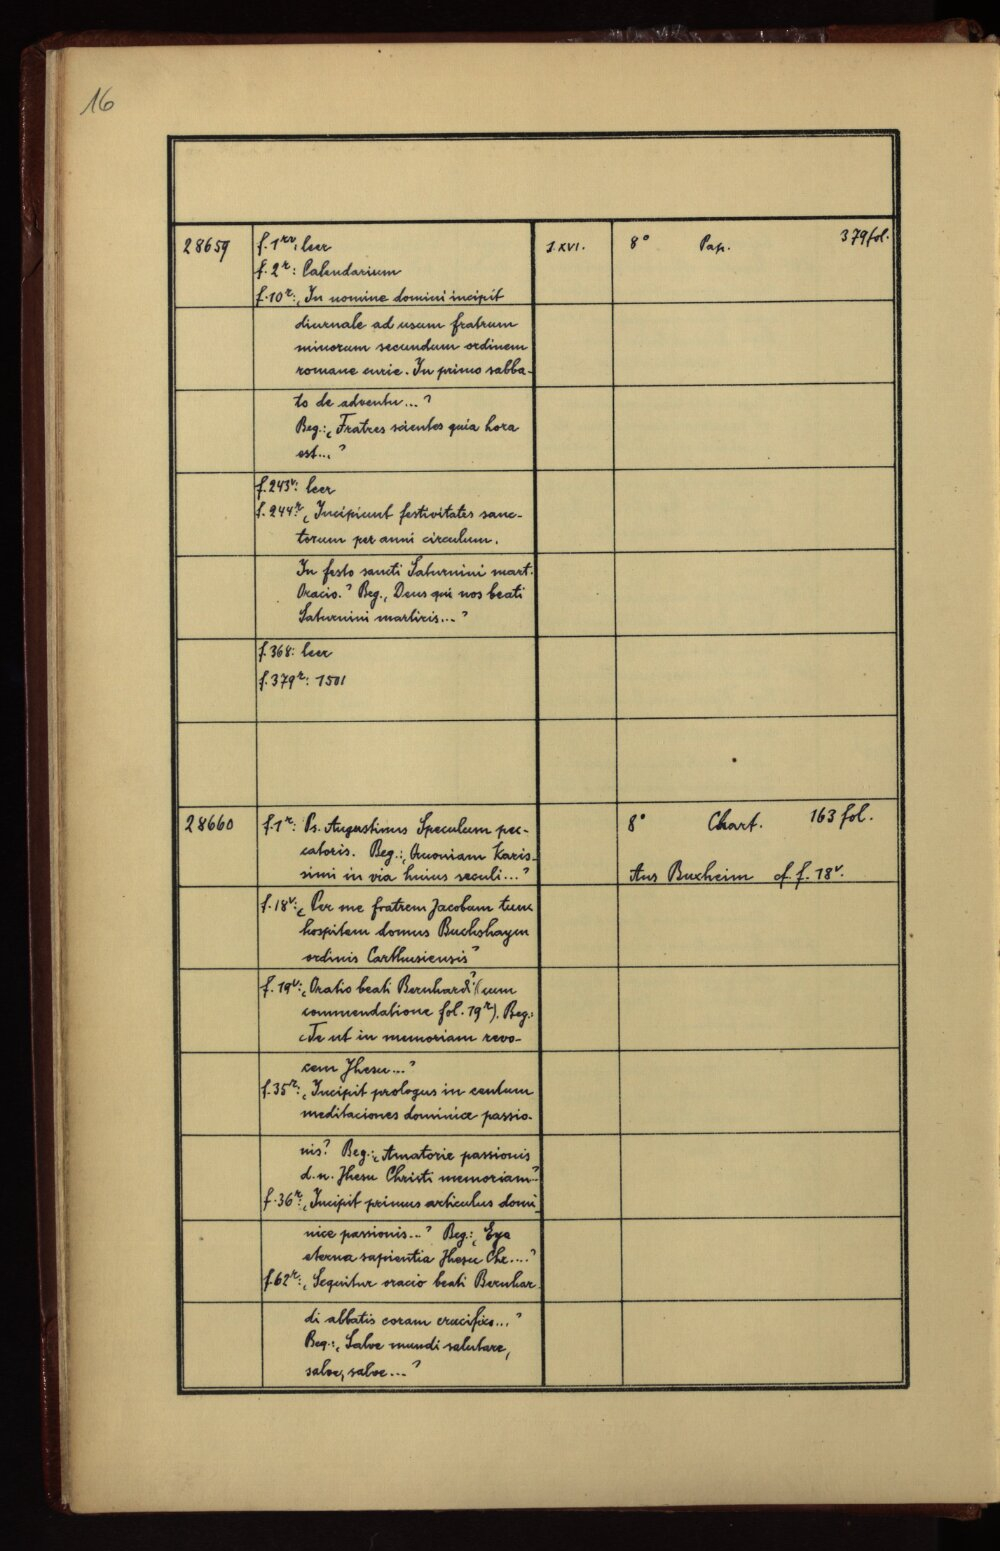 16
28659 f. 1rv: leer s. XVI. 8° Pap. 379 fol.
f. 2r: Calendarium
f. 10r: „In nomine domini incipit
diurnale ad usum fratrum
minorum secundum ordinem
romane curie. In primo sabba-
to de adventu..."
Beg.: „Fratres scientes quia hora
est..."
f. 243v: leer
f. 244r: „Incipiunt festivitates sanc-
torum per anni circulum.
In festo sancti Saturnini mart.
Oracio." Beg. „Deus qui nos beati
Saturnini martiris..."
f. 368: leer
f. 379r: 1501
28660 f. 1r: Ps. Augustinus Speculum pec- 8° Chart. 163 fol.
catoris. Beg.: „Quoniam Karis-
simi in via huius seculi..." Aus Buxheim cf. f. 18v.
f. 18v: „Per me fratrem Jacobum tunc
hospitem domus Buchshaym
ordinis Carthusiensis"
f. 19v: „Oratio beati Bernhardi" (cum
commendatione fol. 19r). Beg.:
„Te ut in memoriam revo-
cem Jhesu..."
f. 35r: „Incipit prologus in centum
meditaciones dominice passio-
nis" Beg.: „Amatorie passionis
d. n. Jhesu Christi memoriam"
f. 36r: „Incipit primus articulus domi
nice passionis..." Beg.: „Eya
eterna sapientia Jhesu Chr...."
f. 62r: „Sequitur oracio beati Bernhar-
di abbatis coram crucifixo..."
Beg.: „Salve mundi salutare,
salve, salve..."